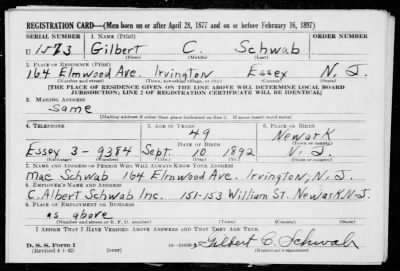 REGISTRATION CARD—(Men born on or after April 28, 1877 and on or before February 16, 1897)
SERIAL NUMBER 1. NAME (Print) ORDER NUMBER
U 1573 Gilbert C. Schwab
(First) (Middle) (Last)
2. PLACE OF RESIDENCE (Print)
164 Elmwood Ave. Irvington Essex N. J.
(Number and street) (Town, township, village, or city) (County) (State)
[THE PLACE OF RESIDENCE GIVEN ON THE LINE ABOVE WILL DETERMINE LOCAL BOARD
JURISDICTION; LINE 2 OF REGISTRATION CERTIFICATE WILL BE IDENTICAL]
3. MAILING ADDRESS
Same
(Mailing address if other than place indicated on line 2. If same insert word same)
4. TELEPHONE 5. AGE IN YEARS 6. PLACE OF BIRTH
49 Newark
DATE OF BIRTH (Town or county)
Essex 3-9384 Sept. 10 1892 N. J.
(Exchange) (Number) (Mo.) (Day) (Yr.) (State or country)
7. NAME AND ADDRESS OF PERSON WHO WILL ALWAYS KNOW YOUR ADDRESS
Mae Schwab 164 Elmwood Ave. Irvington, N. J.
8. EMPLOYER'S NAME AND ADDRESS
C. Albert Schwab Inc. 151-153 William St. Newark N. J.
9. PLACE OF EMPLOYMENT OR BUSINESS
as above
(Number and street or R. F. D. number) (Town) (County) (State)
I AFFIRM THAT I HAVE VERIFIED ABOVE ANSWERS AND THAT THEY ARE TRUE.
D. S. S. Form 1
(Revised 4-1-42) (over) Gilbert C. Schwab